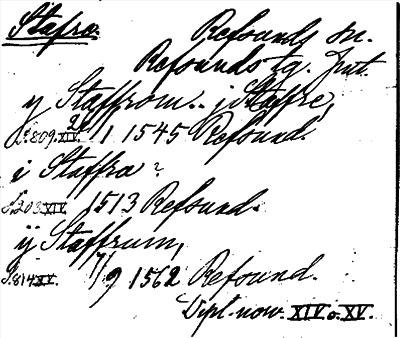 Stafra.
Refsund sn.
Refsunds tg. Jmt.
y Staffrom.. j Staffre,
S.809.XIV. 9/1 1545 Refsund.
i Staffra?
S.203 XIV. 1513 Refsund.
ÿ Staffrum,
S.814 XV. 7/9 1562 Refsund.
Dipl. now. XIV o. XV.